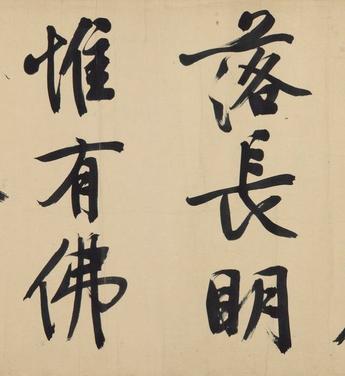 落長明
惟有佛